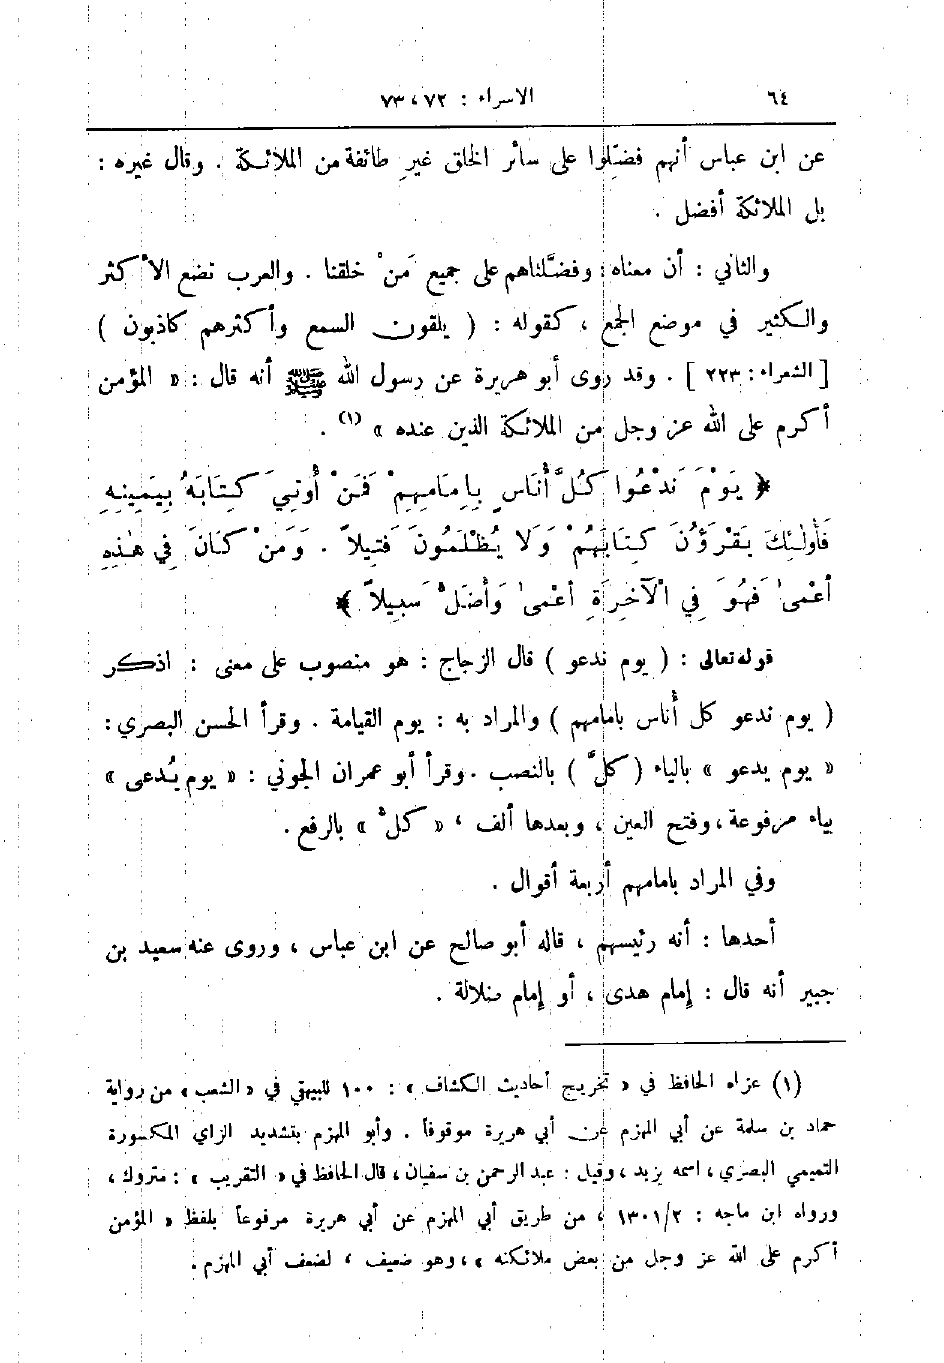 ٦٤ الاسراء : ٧٢ ، ٧٣
عن ابن عباس أنهم فضِّلوا على سائر الخلق غيرِ طائفة من الملائكة . وقال غيره :
بل الملائكة أفضل .
والثاني : أن معناه : وفضَّلناهم على جميع مَنْ خلقنا . والعرب تضع الأكثر
والكثير في موضع الجمع ، كقوله : ( يلقون السمع وأكثرهم كاذبون )
[ الشعراء : ٢٢٣ ] . وقد روى أبو هريرة عن رسول الله ﷺ أنه قال : « المؤمن
أكرم على الله عز وجل من الملائكة الذين عنده » (١) .
﴿ يَوْمَ نَدْعُوا كُلَّ أُنَاسٍ بِإِمَامِهِمْ فَمَنْ أُوتِيَ كِتَابَهُ بِيَمِينِهِ
فَأُولٰئِكَ يَقْرَؤُنَ كِتَابَهُمْ وَلَا يُظْلَمُونَ فَتِيلاً . وَمَنْ كَانَ فِي هٰذِهِ
أَعْمىٰ فَهُوَ فِي الْآخِرَةِ أَعْمىٰ وَأَضَلُّ سَبِيلاً ﴾
قوله تعالى : ( يوم ندعو ) قال الزجاج : هو منصوب على معنى : اذكر
( يوم ندعو كل أُناس بامامهم ) والمراد به : يوم القيامة . وقرأ الحسن البصري :
« يوم يدعو » بالياء ( كلَّ ) بالنصب . وقرأ أبو عمران الجوني : « يوم يُدعى »
بياء مرفوعة ، وفتح العين ، وبعدها ألف ، « كلُّ » بالرفع .
وفي المراد بامامهم أربعة أقوال .
أحدها : أنه رئيسهم ، قاله أبو صالح عن ابن عباس ، وروى عنه سعيد بن
جبير أنه قال : إمام هدى ، أو إمام ضلالة .
(١) عزاه الحافظ في « تخريج أحاديث الكشاف » : ١٠٠ للبيهقي في « الشعب » من رواية
حماد بن سلمة عن أبي المهزم عن أبي هريرة موقوفاً . وأبو المهزم بتشديد الزاي المكسورة
التميمي البصري ، اسمه يزيد ، وقيل : عبد الرحمن بن سفيان ، قال الحافظ في « التقريب » : متروك ،
ورواه ابن ماجه : ١٣٠١/٢ ، من طريق أبي المهزم عن أبي هريرة مرفوعاً بلفظ « المؤمن
أكرم على الله عز وجل من بعض ملائكته » ، وهو ضعيف ، لضعف أبي المهزم .